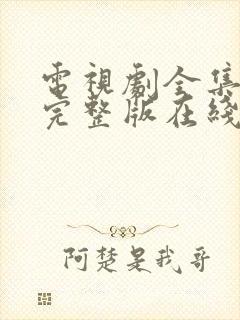 電視劇全集
完整版在綫
阿楚是我哥